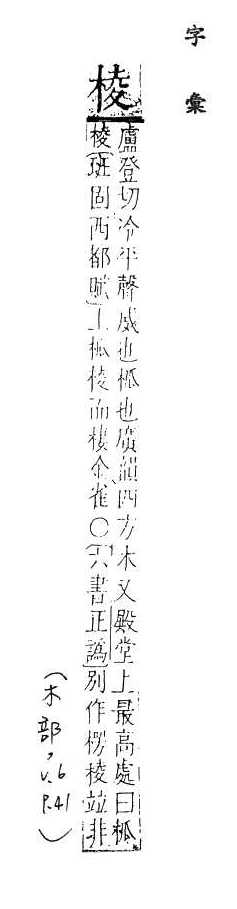 字彙
棱
盧登切冷平聲威也柧也廣韻四方木又殿堂上最高處曰柧
棱班固西都賦上柧棱而棲金雀○六書正譌別作楞稜竝非
(木部, v.6 p.41)